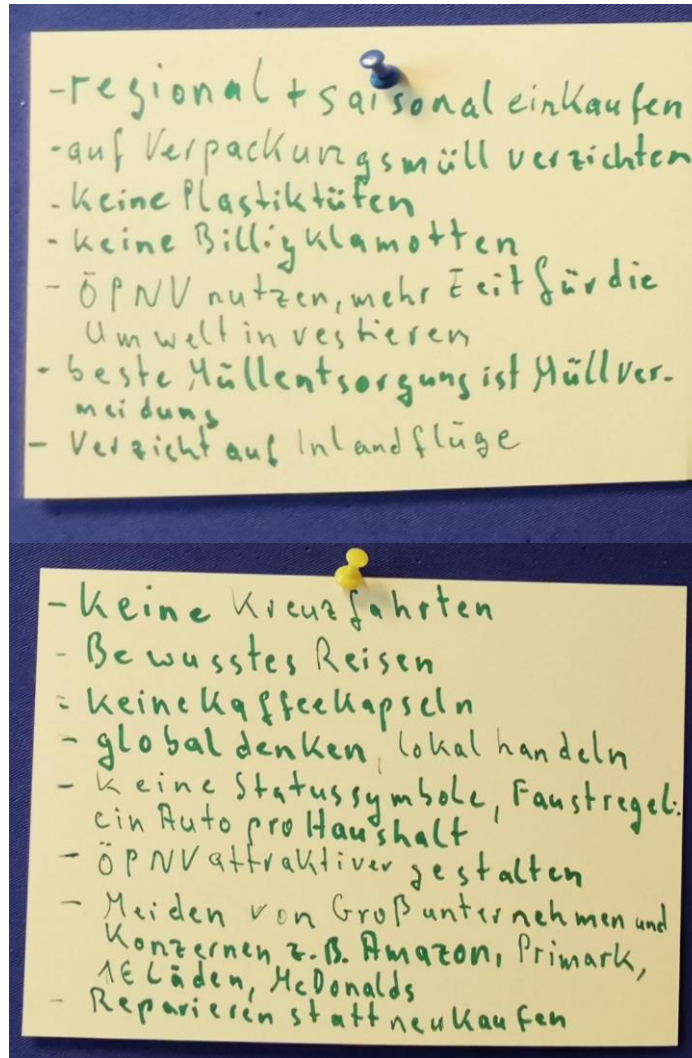 - regional + saisonal einkaufen
- auf Verpackungsmüll verzichten
- keine Plastiktüten
- keine Billigklamotten
- ÖPNV nutzen, mehr Zeit für die
Umwelt investieren
- beste Müllentsorgung ist Müllver-
meidung
- Verzicht auf Inlandflüge
- Keine Kreuzfahrten
- Bewusstes Reisen
- keine Kaffeekapseln
- global denken, lokal handeln
- Keine Statussymbole, Faustregel:
ein Auto pro Haushalt
- ÖPNV attraktiver gestalten
- Meiden von Großunternehmen und
Konzernen z.B. Amazon, Primark,
1€ Läden, McDonalds
- Reparieren statt neu kaufen